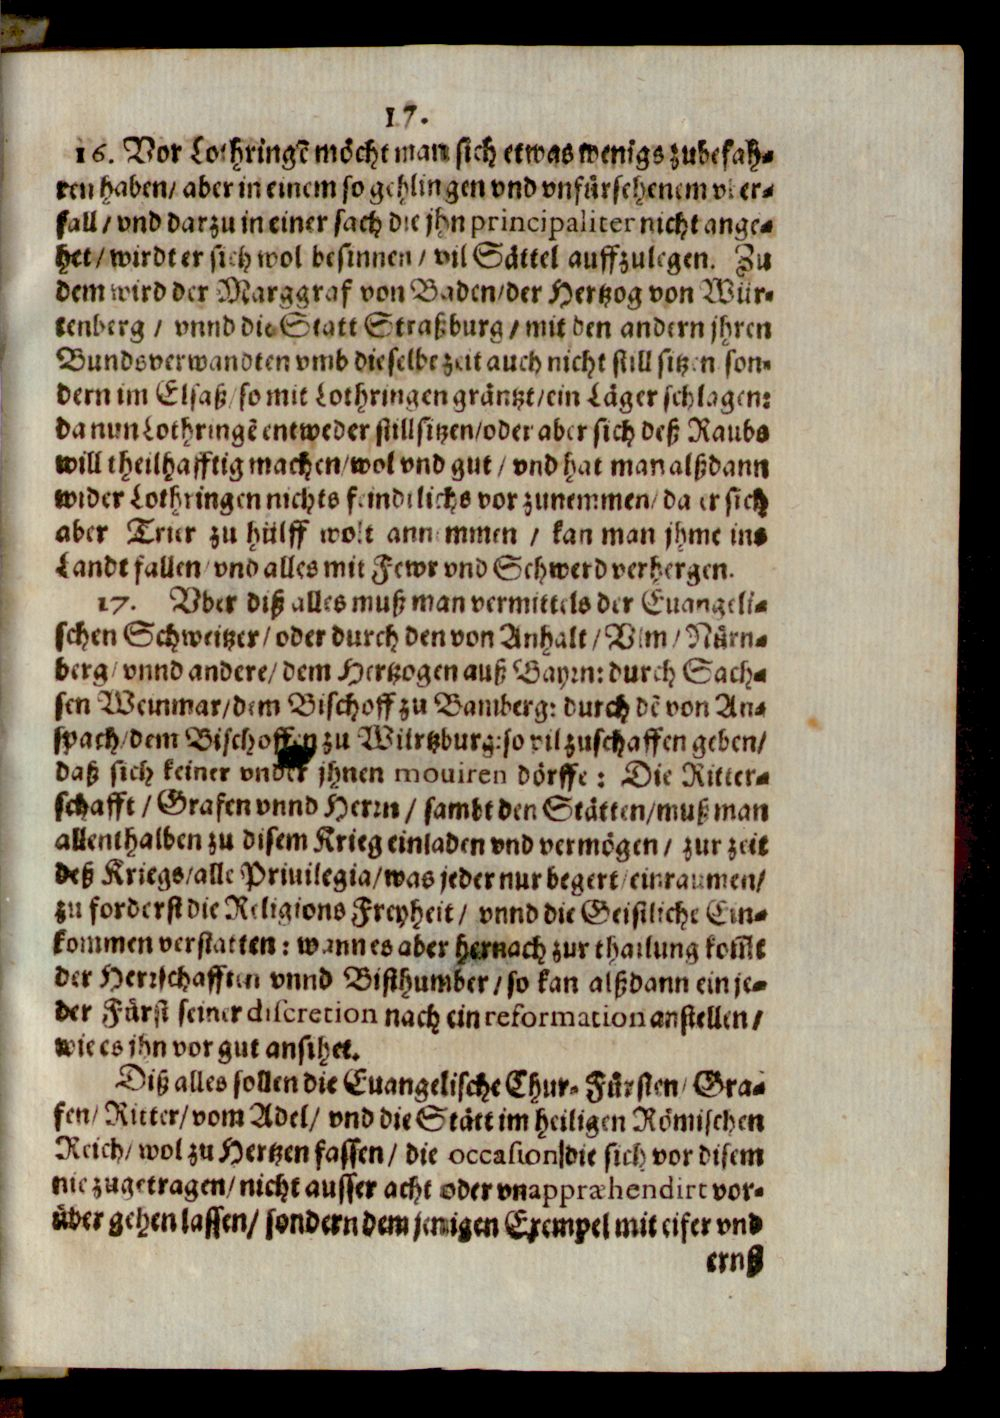 17.
16. Vor Lothringẽ möcht man sich etwas wenigs zubefah-
ren haben/ aber in einem so gehlingen vnd vnfürsehenem vber-
fall / vnd darzu in einer sach die jhn principaliter nicht ange-
het / wirdt er sich wol besinnen / vil Sättel auffzulegen. Zu
dem wird der Marggraf von Baden/ der Hertzog von Wür-
tenberg / vnnd die Statt Straßburg / mit den andern jhren
Bundsverwandten vmb dieselbe zeit auch nicht still sitzen son-
dern im Elsaß/ so mit Lothringen gräntzt/ ein Läger schlagen:
da nun Lothringẽ entweder stillsitzen/ oder aber sich deß Raubs
will theilhafftig machen/ wol vnd gut / vnd hat man alßdann
wider Lothringen nichts feindtlichs vorzunemmen/ da er sich
aber Trier zu hülff wolt annemmen / kan man jhme ins
Landt fallen/ vnd alles mit Fewr vnd Schwerd verhergen.
17. Vber diß alles muß man vermittels der Euangeli-
schen Schweitzer / oder durch den von Anhalt / Vlm / Nürn-
berg/ vnnd andere/ dem Hertzogen auß Bayrn: durch Sach-
sen Weinmar/ dem Bischoff zu Bamberg: durch dẽ von An-
spach/ dem Bischoffen zu Würtzburg: so vil zuschaffen geben/
daß sich keiner vnder jhnen mouiren dörffe : Die Ritter-
schafft / Grafen vnnd Herrn / sambt den Stätten/ muß man
allenthalben zu disem Krieg einladen vnd vermögen / zur zeit
deß Kriegs/ alle Priuilegia/ was jeder nur begert/ einraumen/
zu forderst die Religions Freyheit / vnnd die Geistliche Ein-
kommen verstatten : wann es aber hernach zur thailung kom̃t
der Herrschafften vnnd Bisthumber / so kan alßdann ein je-
der Fürst seiner discretion nach ein reformation anstellen /
wie es jhn vor gut ansihet.
Diß alles sollen die Euangelische Chur- Fürsten/ Gra-
fen/ Ritter/ vom Adel/ vnd die Stätt im heiligen Römischen
Reich/ wol zu Hertzen fassen/ die occasion/die sich vor disem
nie zugetragen/ nicht ausser acht oder vnappræhendirt vor-
über gehen lassen/ sondern dem jenigen Exempel mit eifer vnd
ernst